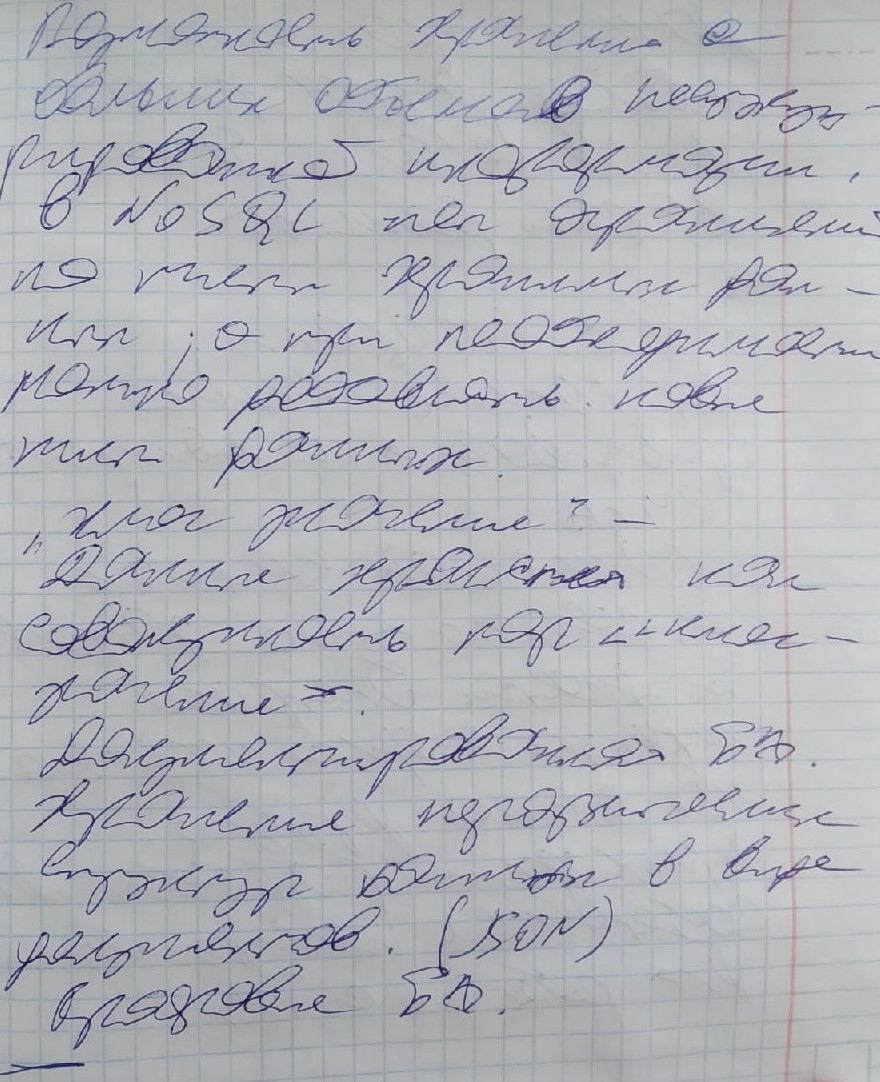 Возможность хранения
больших объемов неструкту-
рированной информации,
в NoSQL нет ограничений
на типы хранимых дан-
ных, а при необходимости
можно добавлять новые
типы данных
„ключ значение" –
Данные хранятся как
совокупность пар «ключ-
значение».
Документированная БД.
Хранение иерархических
структур данных в виде
документов. (JSON)
Графовые БД.